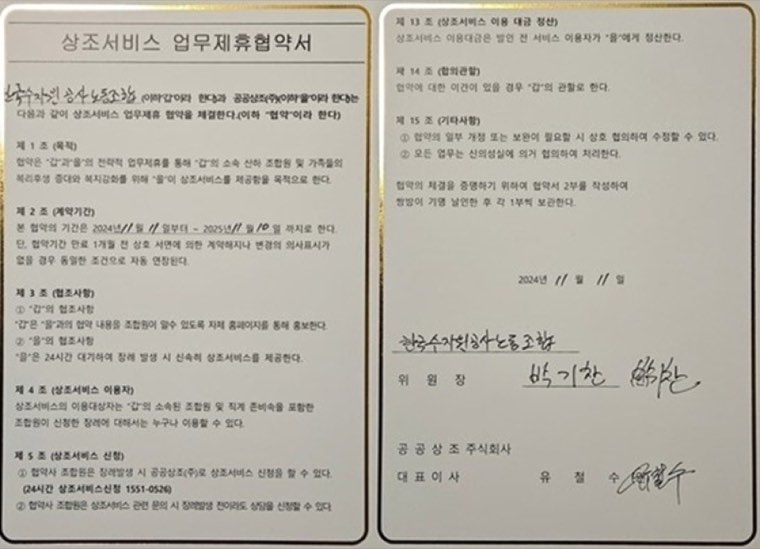 상조서비스 업무제휴협약서
한국수자원공사노동조합 (이하"갑"이라 한다)과 공공상조(주)(이하"을"이라 한다)는
다음과 같이 상조서비스 업무제휴 협약을 체결한다.(이하 "협약"이라 한다)
제 1 조 (목적)
협약은 "갑"과"을"의 전략적 업무제휴를 통해 "갑"의 소속 산하 조합원 및 가족들의
복리후생 증대와 복지강화를 위해 "을"이 상조서비스를 제공함을 목적으로 한다.
제 2 조 (계약기간)
본 협약의 기간은 2024년 11월 11일부터 ~ 2025년 11월 10일 까지로 한다.
단, 협약기간 만료 1개월 전 상호 서면에 의한 계약해지나 변경의 의사표시가
없을 경우 동일한 조건으로 자동 연장된다.
제 3 조 (협조사항)
① "갑"의 협조사항
"갑"은 "을"과의 협약 내용을 조합원이 알수 있도록 자체 홈페이지를 통해 홍보한다.
② "을"의 협조사항
"을"은 24시간 대기하여 장례 발생 시 신속히 상조서비스를 제공한다.
제 4 조 (상조서비스 이용자)
상조서비스의 이용대상자는 "갑"의 소속된 조합원 및 직계 존비속을 포함한
조합원이 신청한 장례에 대해서는 누구나 이용할 수 있다.
제 5 조 (상조서비스 신청)
① 협약사 조합원은 장례발생 시 공공상조(주)로 상조서비스 신청을 할 수 있다.
(24시간 상조서비스신청 1551-0526)
② 협약사 조합원은 상조서비스 관련 문의 시 장례발생 전이라도 상담을 신청할 수 있다.
제 13 조 (상조서비스 이용 대금 정산)
상조서비스 이용대금은 발인 전 서비스 이용자가 "을"에게 정산한다.
제 14 조 (합의관할)
협약에 대한 이견이 있을 경우 "갑"의 관할로 한다.
제 15 조 (기타사항)
① 협약의 일부 개정 또는 보완이 필요할 시 상호 협의하여 수정할 수 있다.
② 모든 업무는 신의성실에 의거 협의하여 처리한다.
협약의 체결을 증명하기 위하여 협약서 2부를 작성하여
쌍방이 기명 날인한 후 각 1부씩 보관한다.
2024년 11 월 11 일
한국수자원공사노동조합
위 원 장 박기찬
공공상조 주식회사
대표이사 유 철 수